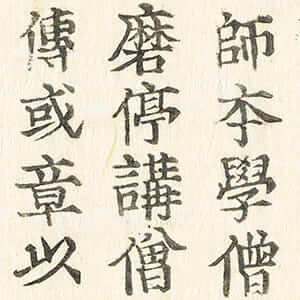 師本學僧
磨停講僧
傳或章以